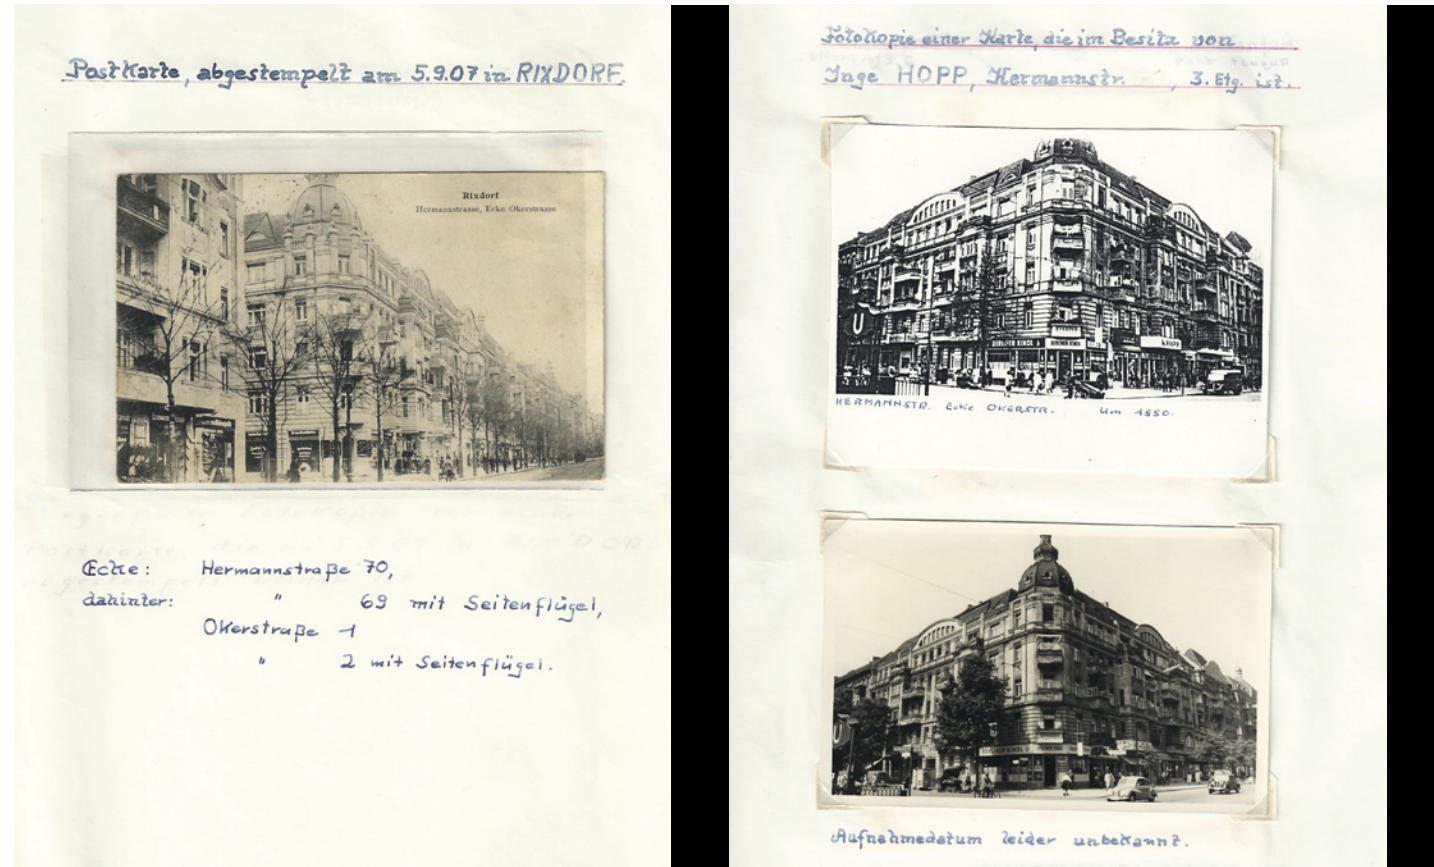 Postkarte, abgestempelt am 5.9.07 in RIXDORF.
Rixdorf
Hermannstrasse, Ecke Okerstrasse
Ecke: Hermannstraße 70,
dahinter: " 69 mit Seitenflügel,
Okerstraße 1
" 2 mit Seitenflügel.
Fotokopie einer Karte, die im Besitz von
Inge HOPP, Hermannstr. , 3. Etg. ist.
U
BERLINER KINDL
BERLINER KINDL
HERMANNSTR. Ecke OKERSTR. Um 1950.
U
BERLINER KINDL
Aufnahmedatum leider unbekannt.